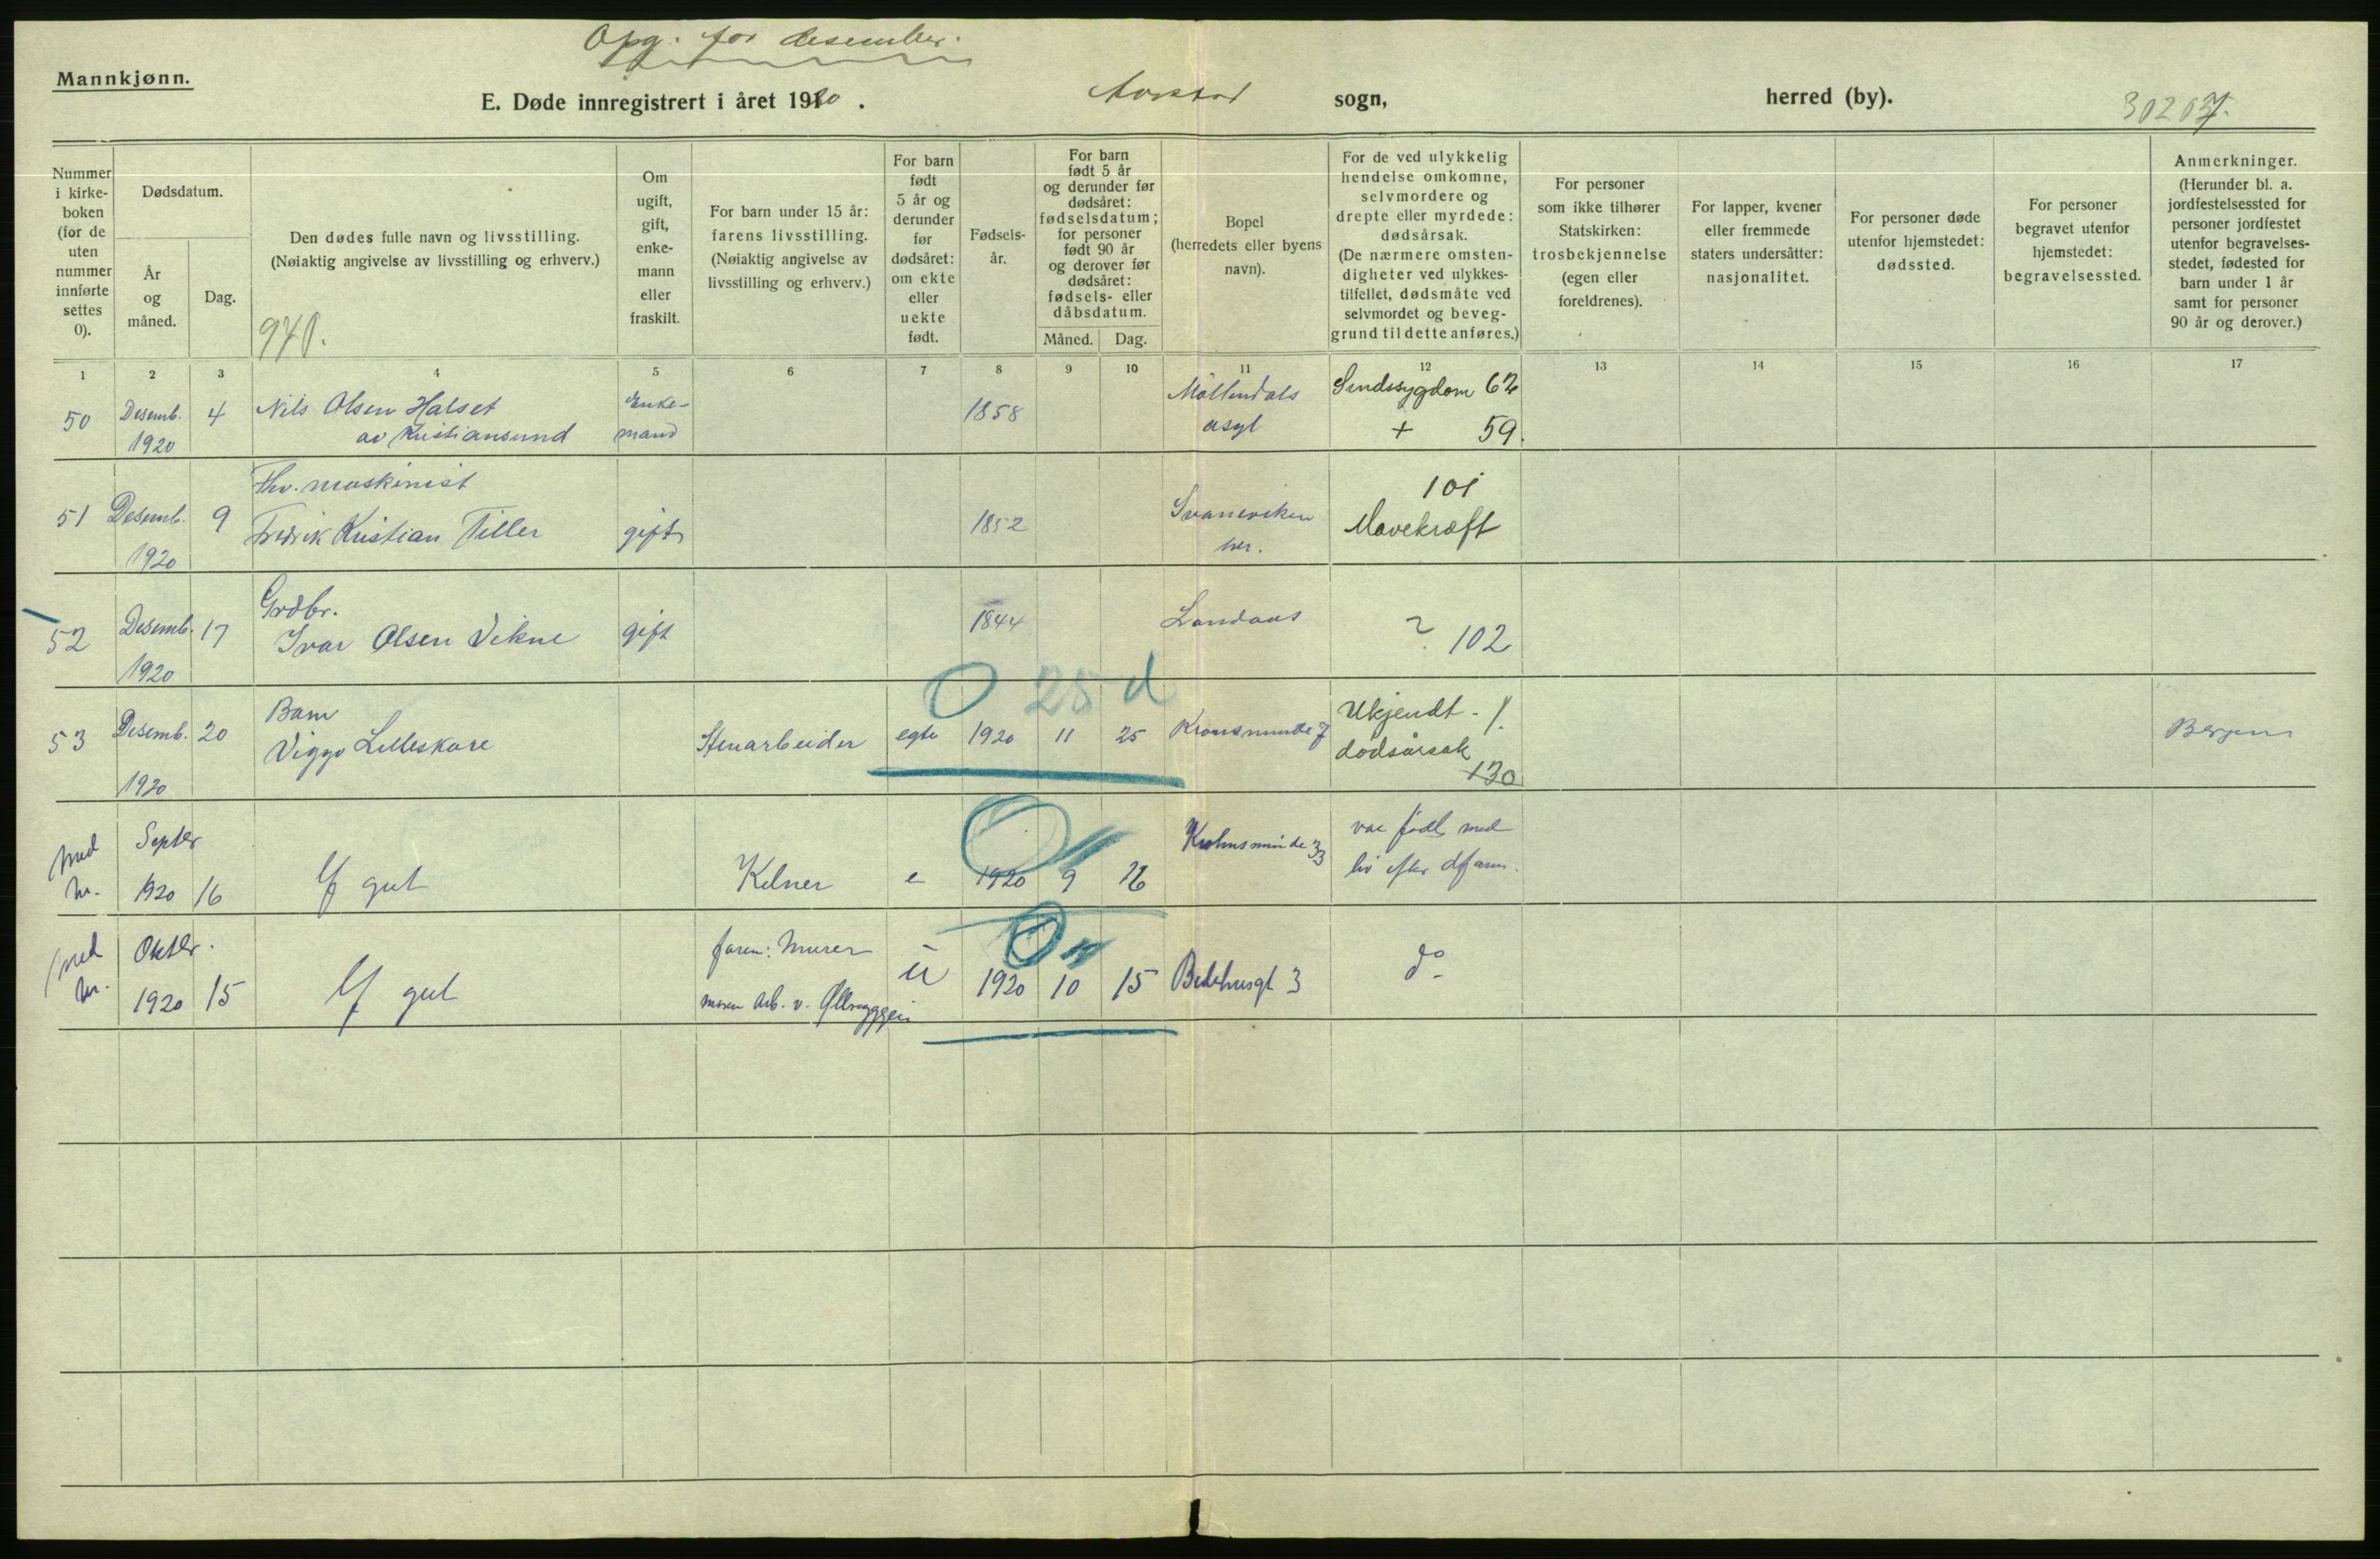 Opg. for desember.
Mannkjønn.
E. Døde innregistrert i året 1920. Aarstad sogn, herred (by).
Nummer i kirke-boken (for de uten nummer innførte settes 0).
Dødsdatum.
År og måned.
Dag.
Den dødes fulle navn og livsstilling.
(Nøiaktig angivelse av livsstilling og erhverv.)
940.
Om ugift, gift, enke-mann eller fraskilt.
For barn under 15 år: farens livsstilling.
(Nøiaktig angivelse av livsstilling og erhverv.)
For barn født 5 år og derunder før dødsåret: om ekte eller uekte født.
Fødsels-år.
For barn født 5 år og derunder før dødsåret: fødselsdatum; for personer født 90 år og derover før dødsåret: fødsels- eller dåbsdatum.
Måned. Dag.
Bopel (herredets eller byens navn).
For de ved ulykkelig hendelse omkomne, selvmordere og drepte eller myrdede: dødsårsak.
(De nærmere omsten-digheter ved ulykkes-tilfellet, dødsmåte ved selvmordet og beveg-grund til dette anføres.)
For personer som ikke tilhører Statskirken: trosbekjennelse (egen eller foreldrenes).
For lapper, kvener eller fremmede staters undersåtter: nasjonalitet.
For personer døde utenfor hjemstedet: dødssted.
For personer begravet utenfor hjemstedet: begravelsessted.
Anmerkninger.
(Herunder bl. a. jordfestelsessted for personer jordfestet utenfor begravelses-stedet, fødested for barn under 1 år samt for personer 90 år og derover.)
1 2 3 4 5 6 7 8 9 10 11 12 13 14 15 16 17
50 Desemb. 1920 4 Nils Olsen Halset av Kristiansund Enke-mand 1858 Møllendals asyl Sindssygdom 62 + 59.
51 Desemb. 1920 9 Fhv. maskinist Fredrik Kristian Tiller gift 1852 Svaneviken her. 101 Mavekræft
52 Desemb. 1920 17 Grdbr. Ivar Olsen Vikne gift 1844 Landaas ? 102
0 25 d
53 Desemb. 1920 20 Barn Viggo Lilleskare Stenarbeider egte 1920 11 25 Kronsminde 7 Ukjendt dødsårsak 130 Bergen
med nr. Septbr 1920 16 gut Kelner e 1920 9 16 Krohnsminde 33 var født med liv efter dfarm.
med nr. Oktbr. 1920 15 gut faren: Murer moren Arb. v. u 1920 10 15 Bedehusgt 3 do